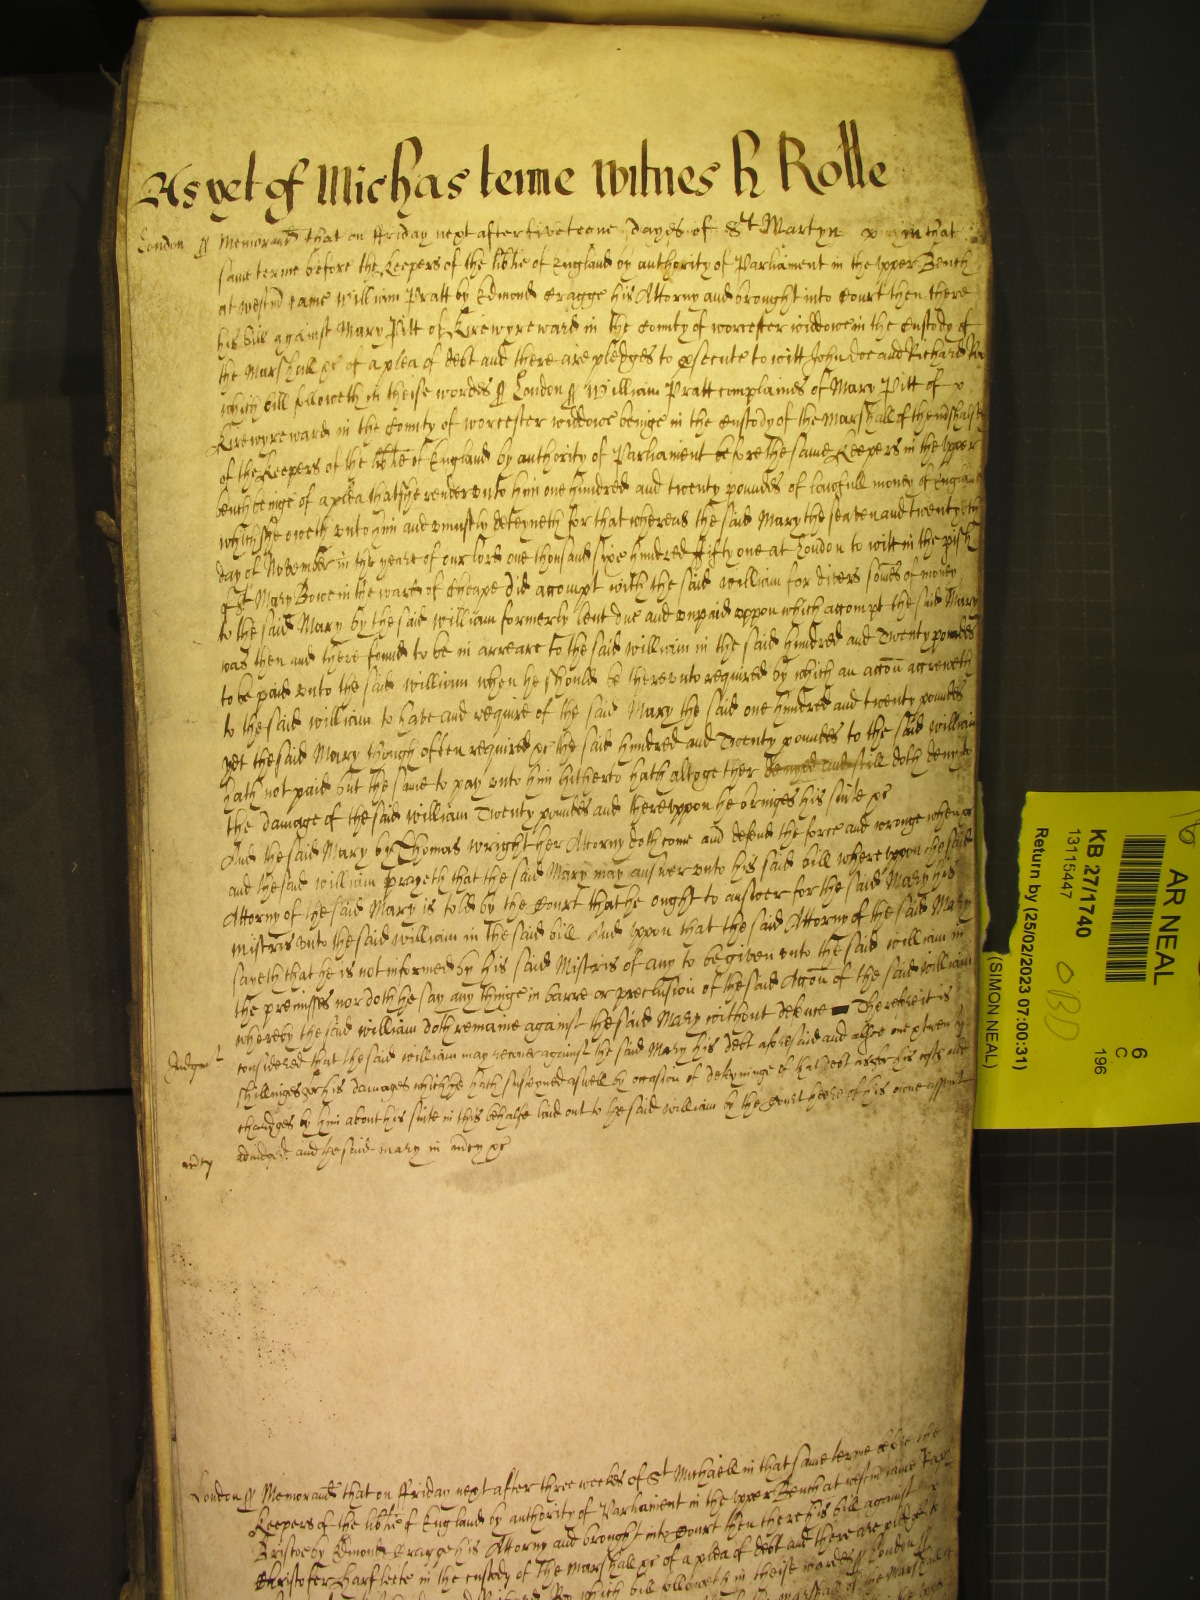 As yet of Michas terme Witnes H Rolle
London ss Memorand that on ffriday next after fiveteene dayes of St Martyn in that
same terme before the Keepers of the libtie of England by authority of Parliament in the upper Bench
at Westm came William Pratt by Edmond Cragge his Attorny and brought into Court then there
his bill against Mary Pitt of Kirewyreward in the County of Worcester widdowe in the Custody of
the Marshall &c of a plea of debt and there are pledges to psecute to witt John Doe and Richard Ro
which bill followeth in theise wordes ss London ss William Pratt complaines of Mary Pitt of
Kirewyreward in the County of Worcester widdowe beinge in the Custody of the Marshall of the Mshalsy
of the Keepers of the libtie of England by authority of Parliament before the same Keepers in the upper
bench beinge of a plea that she render unto him one hundred and twenty poundes of lawfull money of England
which she oweth unto him and uniustly deteyneth for that whereas the said Mary the seaven and twentyeth
day of November in the yeare of our lord one thousand sixe hundred fifty one at London to witt in the pish
of St Mary Bowe in the ward of Cheape did accompt with the said William for divers somes of money
to the said Mary by the said William formerly lent due and unpaid uppon which accompt the said Mary
was then and there found to be in arreare to the said William in the said hundred and Twenty poundes
to be paid unto the said William when he should be thereunto required by which an accon accreweth
to the said William to have and require of the said Mary the said one hundred and twenty poundes
yet the said Mary though often required &c the said hundred and Twenty poundes to the said William
hath not paid but the same to pay unto him hitherto hath altogether denyed and still doth deny to
the damage of the said William Twenty poundes and thereuppon he bringes his suite &c
And the said Mary by Thomas Wright her Attorny doth come and defend the force and wronge when &c
and the said William prayeth that the said Mary may answer unto his said bill whereuppon the said
Attorny of the said Mary is told by the Court that he ought to answer for the said Mary his
mistris unto the said William in the said bill And uppon that the said Attorny of the said Mary
sayeth that he is not informed by his said Mistris of any to be given unto the said William in
the premisses nor doth he say any thinge in barre or preclusion of the said Accon of the said William
whereby the said William doth remaine against the said Mary without defence Therefore it is
Judgmt considered that the said William may recover against the said Mary his debt aforesaid and alsoe one &
shillinges for his damages which he hath susteyned aswell by occasion of deteyninge of that debt as for his costs and
chardges by him about his suite in this behalfe laid out to the said William by the Court heere of his owne assent
mcy adiudged and the said Mary in mcy &c
London ss Memorand that on ffriday next after three weekes of St Michaell in that same terme before the
Keepers of the libtie of England by authority of Parliament in the upper Bench at Westm came
Bristoe by Edmond Cragge his Attorny and brought into Court then there his bill against
Christofer Harfleete in the custody of the Marshall &c of a plea of debt and there are pledges to
which bill followeth in theise wordes ss London ss
AR NEAL
KB 27/1740
13115447
Return by (25/02/2023 07:00:31)
(SIMON NEAL)
6
C
196